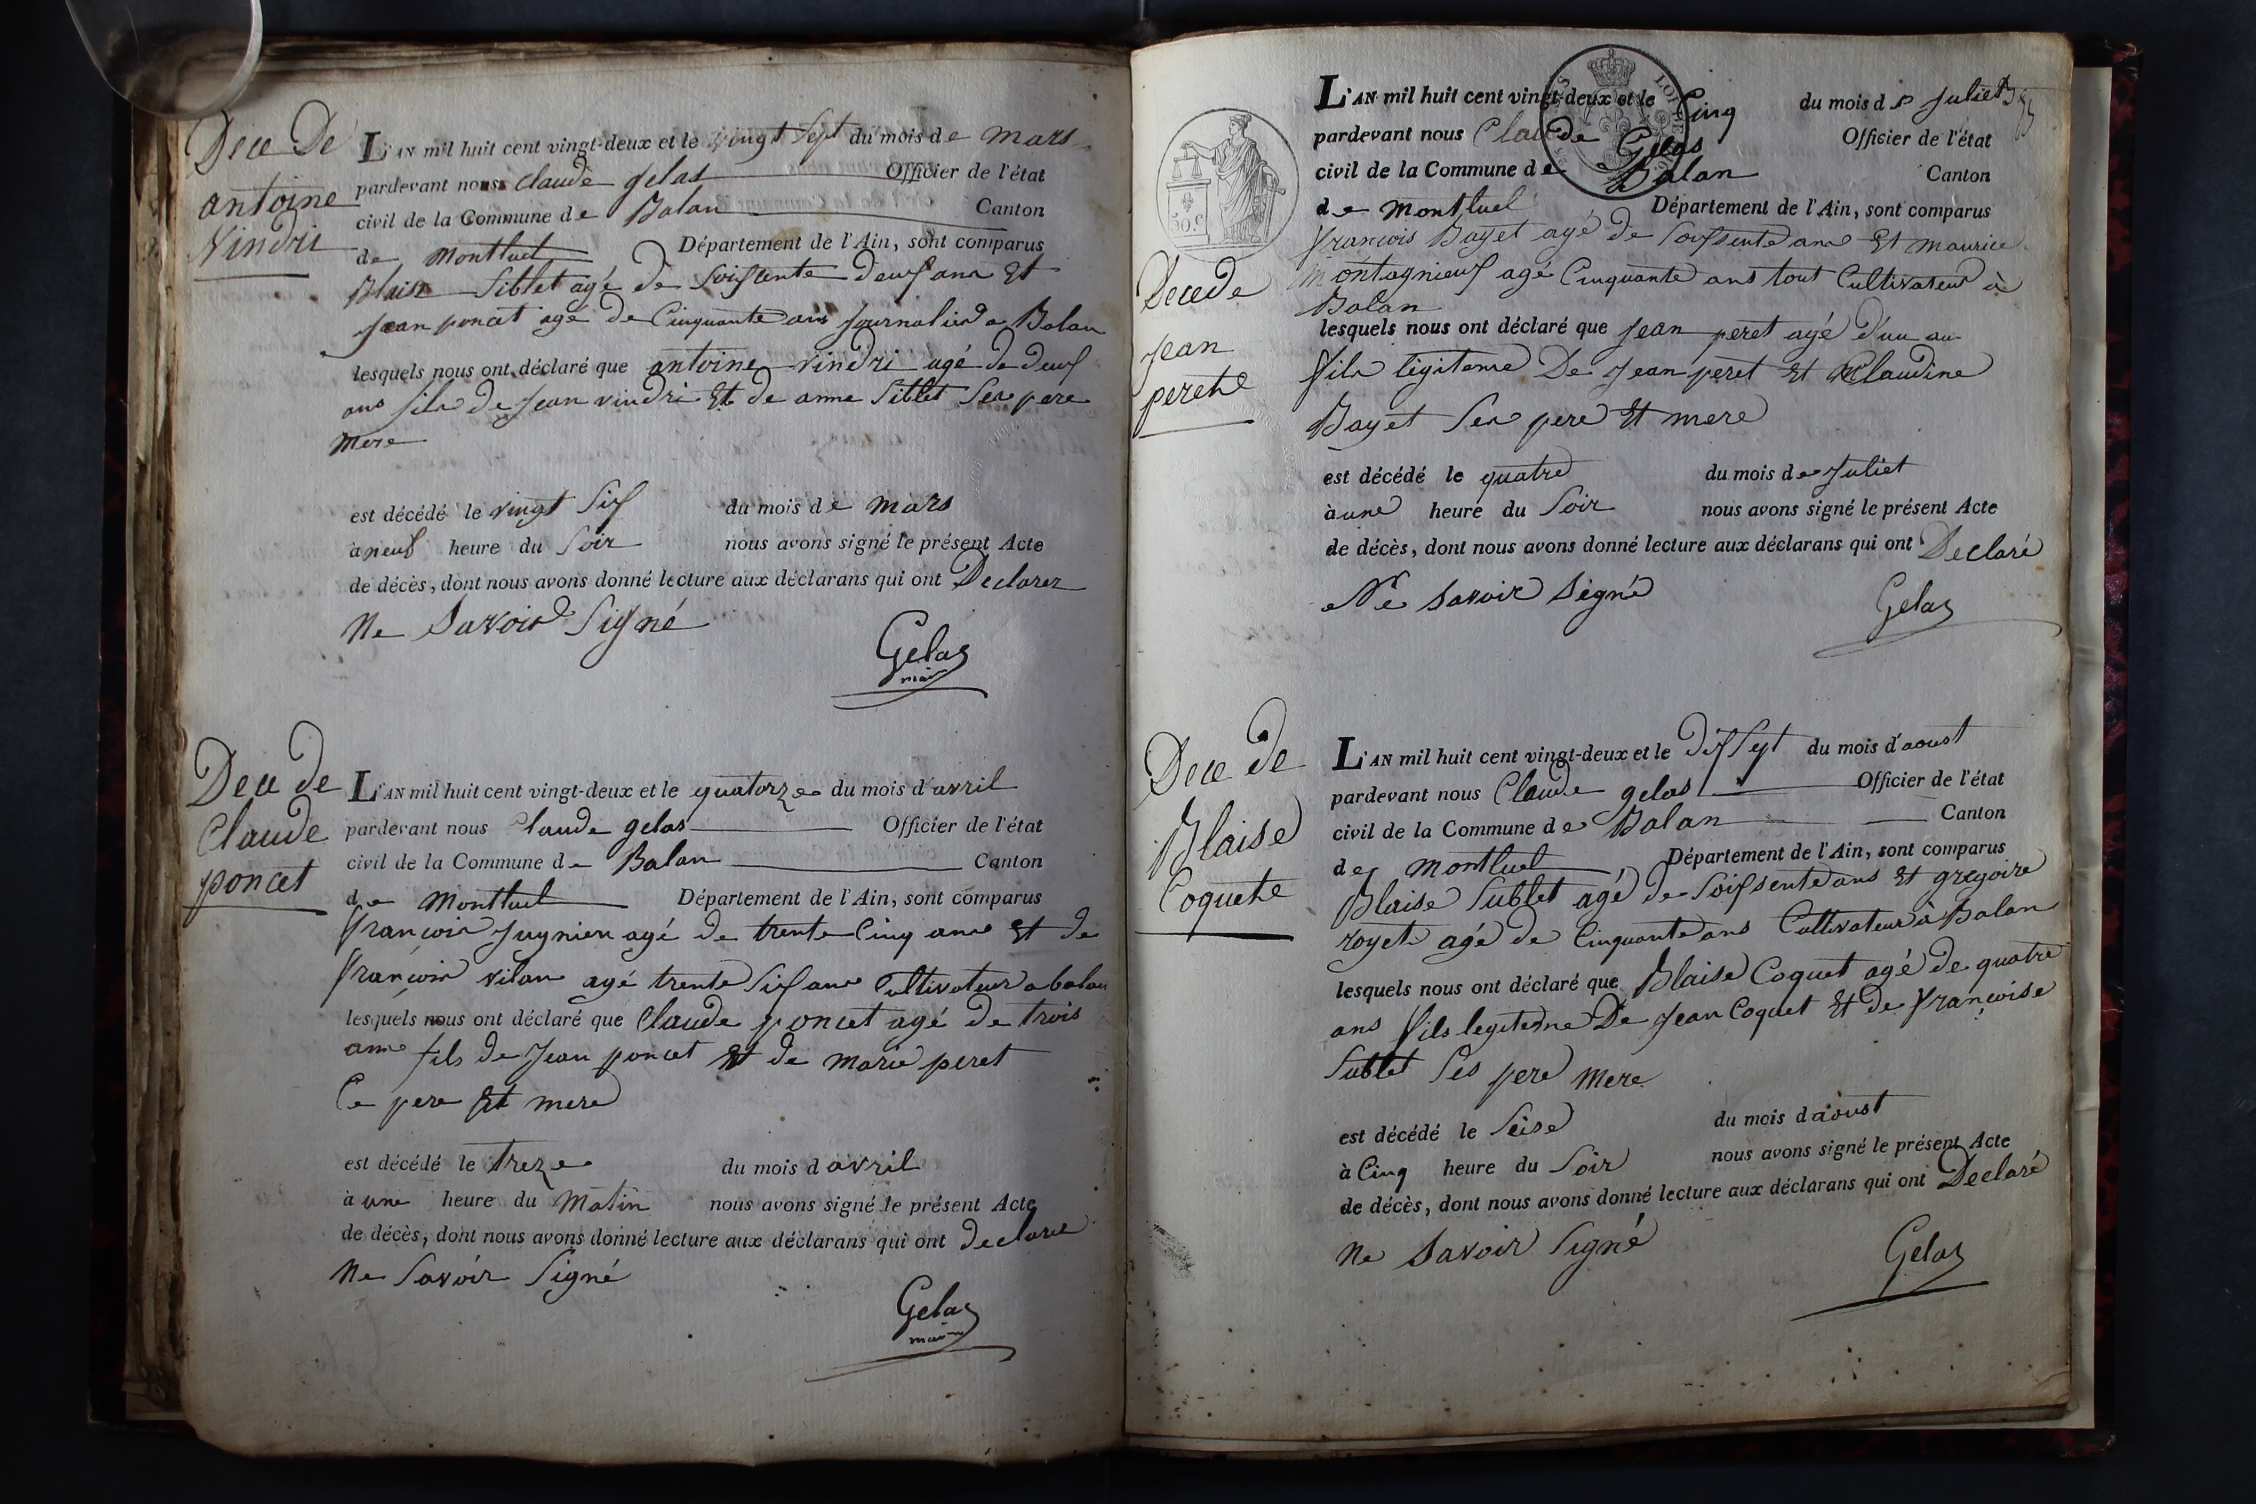 Dece De
antoine
Vindri
L'AN mil huit cent vingt-deux et le vingt Sept du mois de mars
pardevant nous claude gelas Officier de l'état
civil de la Commune de Balan Canton
de montluel Département de l'Ain, sont comparus
Blaise Siblet agé de Soissente deux ans Et
Jean poncet agé de Cinquante ans Journalier a Balan
lesquels nous ont déclaré que antoine vindri agé de deux
ans fils de Jean vindri Et de anne Siblet Ses pere
mere
est décédé le vingt Six du mois de mars
à neuf heure du Soir nous avons signé le présent Acte
de décès, dont nous avons donné lecture aux déclarans qui ont Declarez
Ne Savoir Signé
Gelas
maire
Dece de
Claude
poncet
L'AN mil huit cent vingt-deux et le quatorze du mois d'avril
pardevant nous Claude gelas Officier de l'état
civil de la Commune de Balan Canton
de Montluel Département de l'Ain, sont comparus
françois Jugnien agé de trente Cinq ans Et de
françois vilan agé trente Six ans Cultivateur a balan
lesquels nous ont déclaré que Claude poncet agé de trois
ans fils de Jean poncet Et de marie peret
Ce pere Et mere
est décédé le treze du mois d avril
à une heure du Matin nous avons signé le présent Acte
de décès, dont nous avons donné lecture aux déclarans qui ont declaré
Ne Savoir Signé
Gelas
maire
L'AN mil huit cent vingt-deux et le Cinq du mois de Juliet
pardevant nous Claude Gelas Officier de l'état
civil de la Commune de Balan Canton
de montluel Département de l'Ain, sont comparus
50.c
Decede
Jean
perete
françois Bayet agé de Soissente ans Et maurice
montagnieux agé Cinquante ans tout Cultivateur à
Balan
lesquels nous ont déclaré que Jean peret agé d'un an
fils légiteme De Jean peret Et Claudine
Bayet Ses pere Et mere
est décédé le quatre du mois de Juliet
à une heure du Soir nous avons signé le présent Acte
de décès, dont nous avons donné lecture aux déclarans qui ont Declaré
Ne savoir signé
Gelas
Dece de
Blaise
Coquete
L'AN mil huit cent vingt-deux et le dix Sept du mois d'aoust
pardevant nous Claude gelas Officier de l'état
civil de la Commune de Balan Canton
de montluel Département de l'Ain, sont comparus
Blaise Sublet agé de Soissente ans Et gregoire
royet agé de Cinquante ans Cultivateur à Balan
lesquels nous ont déclaré que Blaise Coquet agé de quatre
ans fils legiteme De Jean Coquet Et de françoise
Sublet Ses pere mere
est décédé le Seise du mois d aoust
à Cinq heure du Soir nous avons signé le présent Acte
de décès, dont nous avons donné lecture aux déclarans qui ont Declaré
Ne savoir Signé
Gelas